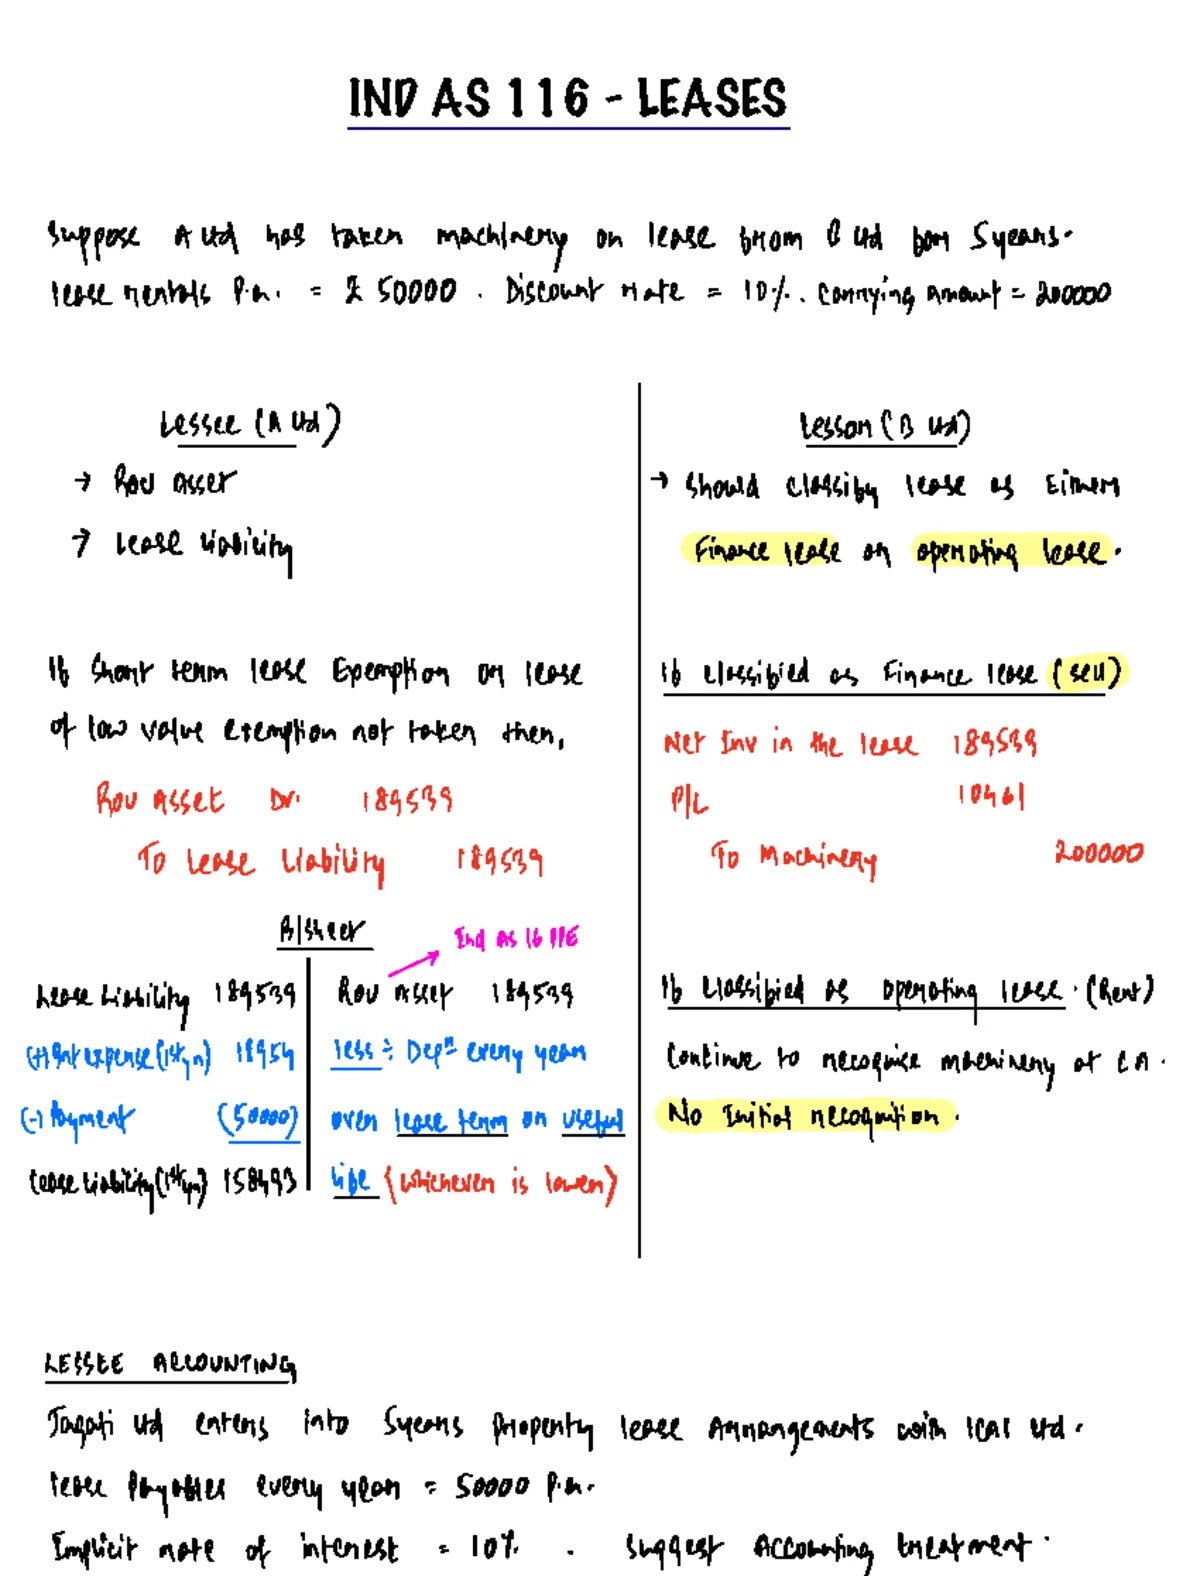 IND AS 116 - LEASES
Suppose A Ltd has taken machinery on lease from B Ltd for 5 years.
lease rentals P.a. = ₹ 50000 . Discount rate = 10%. Carrying Amount = 200000
Lessee (A Ltd)
→ ROU Asset
→ Lease Liability
If Short term lease Exemption or lease
of low value exemption not taken then,
ROU Asset Dr. 189539
To Lease Liability 189539
B/Sheet
Ind AS 16 PPE
Lease Liability 189539 ROU Asset 189539
(+) Int expense (1st yr) 18954 less :- Depn every year
(-) Payment (50000) over lease term or useful
Lease Liability (1st yr) 158493 life (whichever is lower)
Lessor (B Ltd)
→ Should classify lease as Either
Finance lease or operating lease.
If Classified as Finance lease (sell)
Net Inv in the lease 189539
P/L 10461
To Machinery 200000
If Classified as operating lease . (Rent)
Continue to recognise machinery at CA.
No Initial recognition.
LESSEE ACCOUNTING
Jagati Ltd enters into 5 years Property lease Arrangements with ICAI Ltd.
lease Payables every year = 50000 P.a.
Implicit rate of interest = 10% . Suggest Accounting treatment.